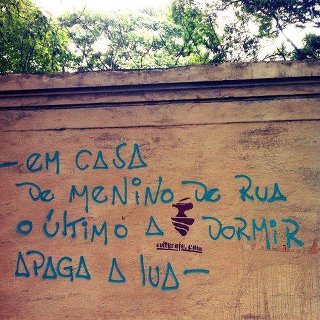 — EM CASA
DE MENINO DE RUA
O ÚLTIMO A DORMIR
APAGA A LUA —